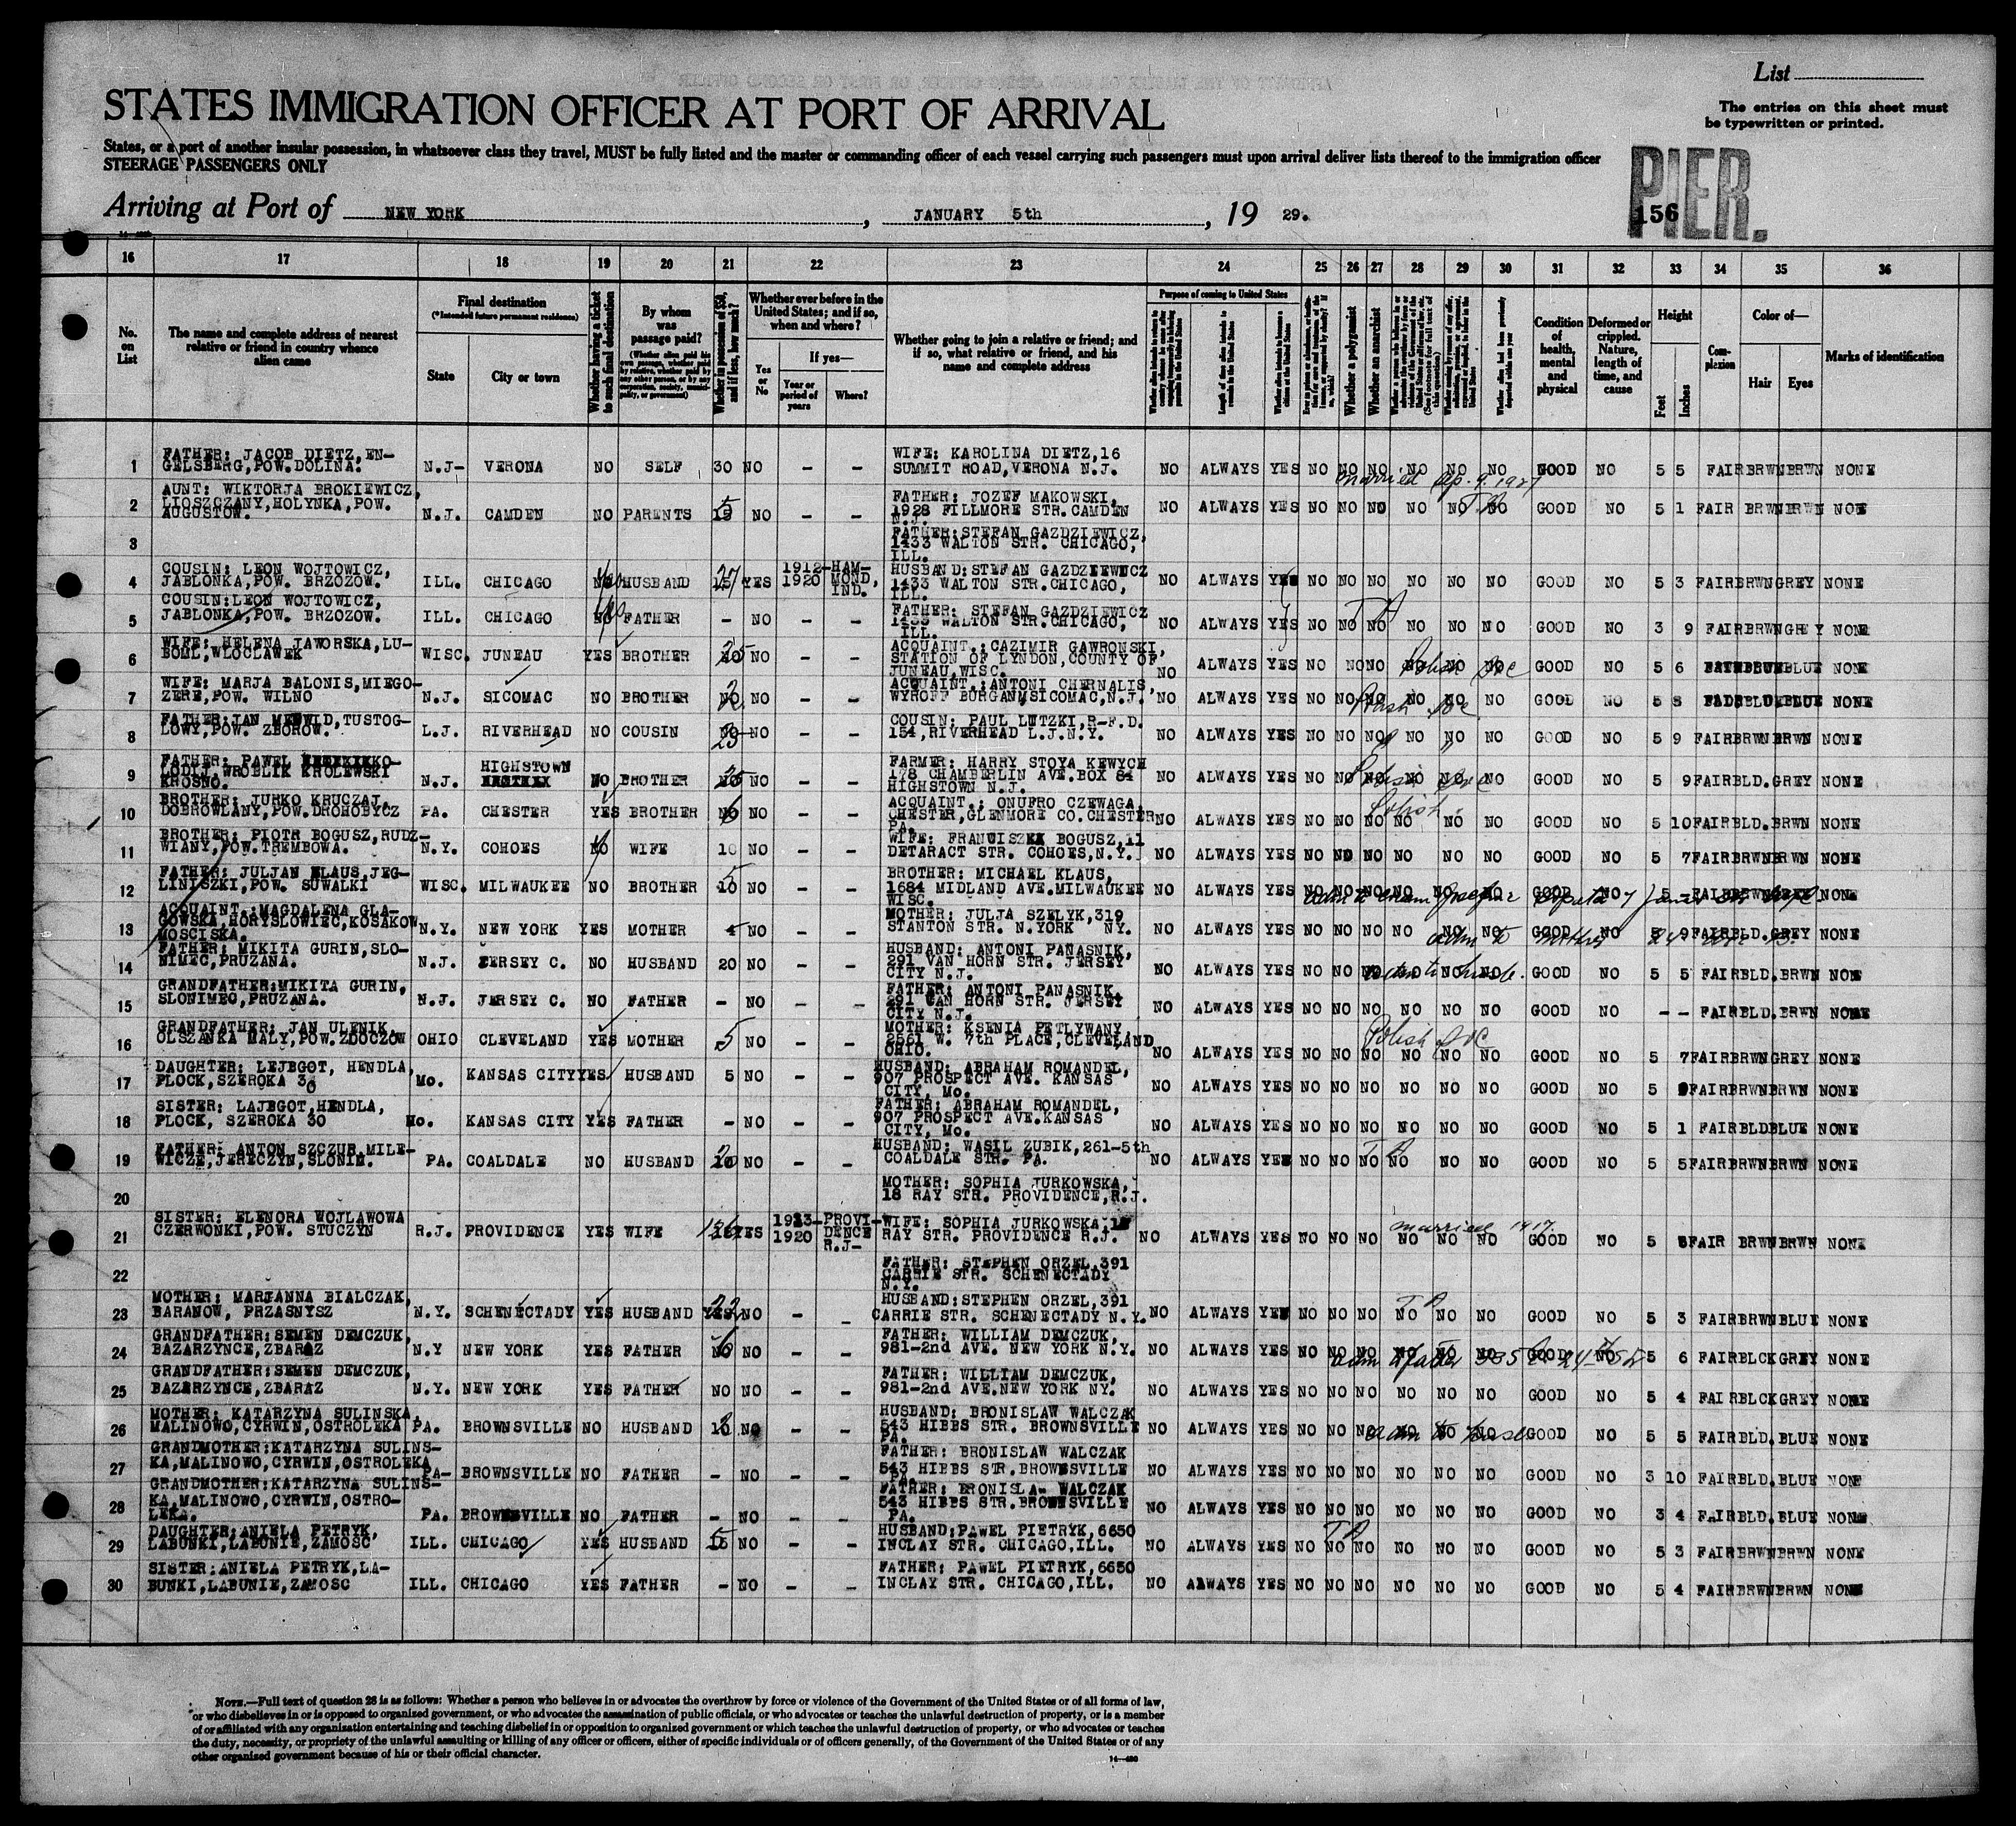 List
STATES IMMIGRATION OFFICER AT PORT OF ARRIVAL
The entries on this sheet must
be typewritten or printed.
States, or a port of another insular possession, in whatsoever class they travel, MUST be fully listed and the master or commanding officer of each vessel carrying such passengers must upon arrival deliver lists thereof to the immigration officer
STEERAGE PASSENGERS ONLY
PIER.
156
Arriving at Port of NEW YORK, JANUARY 5th, 19 29.
16 17 18 19 20 21 22 23 24 25 26 27 28 29 30 31 32 33 34 35 36
No. on List
The name and complete address of nearest relative or friend in country whence alien came
Final destination
(*Intended future permanent residence)
State
City or town
Whether having a ticket to such final destination
By whom was passage paid?
(Whether alien paid his own passage, whether paid by relative, whether paid by any other person, or by any corporation, society, municipality, or government)
Whether in possession of $50, and if less, how much?
Whether ever before in the United States; and if so, when and where?
Yes or No
If yes—
Year or period of years
Where?
Whether going to join a relative or friend; and if so, what relative or friend, and his name and complete address
Purpose of coming to United States
Length of time alien intends to remain in the United States
Whether alien intends to become a citizen of the United States
Whether a polygamist
Whether an anarchist
Condition of health, mental and physical
Deformed or crippled. Nature, length of time, and cause
Height
Feet
Inches
Complexion
Color of—
Hair
Eyes
Marks of identification
1 FATHER: JACOB DIETZ, ENGELSBERG, POW. DOLINA. N.J- VERONA NO SELF 30 NO – – WIFE: KAROLINA DIETZ, 16 SUMMIT ROAD, VERONA N.J. NO ALWAYS YES NO NO NO NO NO NO GOOD NO 5 5 FAIR BRWN BRWN NONE
married Ap. 9. 1927
2 AUNT: WIKTORJA BROKIEWICZ, LIOSZCZANY, HOLYNKA, POW. AUGUSTOW. N.J. CAMDEN NO PARENTS 15 5 NO – – FATHER: JOZEF MAKOWSKI, 1928 FILLMORE STR. CAMDEN N.J. NO ALWAYS YES NO NO NO NO NO NO GOOD NO 5 1 FAIR BRWN BRWN NONE
3 FATHER: STEFAN GAZDZIEWICZ, 1433 WALTON STR. CHICAGO, ILL.
4 COUSIN: LEON WOJTOWICZ, JABLONKA, POW. BRZOZOW. ILL. CHICAGO NO yes HUSBAND 27 YES 1912-1920 HAMMOND, IND. HUSBAND: STEFAN GAZDZIEWICZ 1433 WALTON STR. CHICAGO, ILL. NO ALWAYS YES NO NO NO NO NO NO GOOD NO 5 3 FAIR BRWN GREY NONE
5 COUSIN: LEON WOJTOWICZ, JABLONKA, POW. BRZOZOW. ILL. CHICAGO NO yes FATHER – NO – – FATHER: STEFAN GAZDZIEWICZ 1433 WALTON STR. CHICAGO, ILL. NO ALWAYS YES NO NO NO NO NO NO GOOD NO 3 9 FAIR BRWN GREY NONE
6 WIFE: HELENA JAWORSKA, LUBOML, WLOCLAWEK WISC. JUNEAU YES BROTHER NO 25 NO – – ACQUAINT.: CAZIMIR GAWRONSKI, STATION OF LYNDON, COUNTY OF JUNEAU, WISC. NO ALWAYS YES NO NO NO NO NO NO GOOD NO 5 6 BLUE NONE
7 WIFE: MARJA BALONIS, MIEGOZERE, POW. WILNO N.J. SICOMAC NO BROTHER NO 2 NO – – ACQUAINT.: ANTONI CHERNALIS, WYROFF BURGAN, SICOMAC, N.J. NO ALWAYS YES NO NO NO NO NO NO GOOD NO 5 8 BLUE NONE
8 FATHER: JAN, TUSTOGLOWY, POW. ZBOROW. L.J. RIVERHEAD NO COUSIN 23 NO – – COUSIN: PAUL LUTZKI, R-F.D. 154, RIVERHEAD L.J. N.Y. NO ALWAYS YES NO NO NO NO NO NO GOOD NO 5 9 FAIR BRWN BRWN NONE
9 FATHER: PAWEL KOLODIJ, WROBLIK KROLEWSKI KROSNO. N.J. HIGHSTOWN NO BROTHER NO 25 NO – – FARMER: HARRY STOYA KEWYCH 178 CHAMBERLIN AVE. BOX 84 HIGHSTOWN N.J. NO ALWAYS YES NO NO NO NO NO NO GOOD NO 5 9 FAIR BLD. GREY NONE
Polish
10 BROTHER: JURKO KRUCZAJ, DOBROWLANY, POW. DROHOBYCZ PA. CHESTER YES BROTHER NO 6 NO – – ACQUAINT.: ONUFRO CZEWAGA, CHESTER, GLENMORE CO. CHESTER PA. NO ALWAYS YES NO NO NO NO NO NO GOOD NO 5 10 FAIR BLD. BRWN NONE
11 BROTHER: PIOTR BOGUSZ, RUDZWIANY, POW. TREMBOWA. N.Y. COHOES NO WIFE 10 NO – – WIFE: FRANCISZKA BOGUSZ, 11 DETARACT STR. COHOES, N.Y. NO ALWAYS YES NO NO NO NO NO NO GOOD NO 5 7 FAIR BRWN BRWN NONE
12 FATHER: JULJAN KLAUS, JEGLINISZKI, POW. SUWALKI WISC. MILWAUKEE NO BROTHER 10 5 NO – – BROTHER: MICHAEL KLAUS, 1684 MIDLAND AVE. MILWAUKEE WISC. NO ALWAYS YES NO NO NO NO NO NO GOOD NO 5 – FAIR BRWN NONE
13 ACQUAINT.: MAGDALENA GLAGOWSKA, HORYSLOWIEC, KOSAKOW MOSCISKA. N.Y. NEW YORK YES MOTHER 4 NO – – MOTHER: JULJA SZELYK, 319 STANTON STR. N.YORK NY. NO ALWAYS YES NO NO NO NO NO NO GOOD NO 5 9 FAIR BLD. GREY NONE
adm to mother
14 FATHER: MIKITA GURIN, SLONIMEC, PRUZANA. N.J. JERSEY C. NO HUSBAND 20 NO – – HUSBAND: ANTONI PANASNIK, 291 VAN HORN STR. JERSEY CITY N.J. NO ALWAYS YES NO NO NO NO NO NO GOOD NO 5 5 FAIR BLD. BRWN NONE
adm to husb.
15 GRANDFATHER: MIKITA GURIN, SLONIMEC, PRUZANA. N.J. JERSEY C. NO FATHER – NO – – FATHER: ANTONI PANASNIK, 291 VAN HORN STR. JERSEY CITY N.J. NO ALWAYS YES NO NO NO NO NO NO GOOD NO – – FAIR BLD. BRWN NONE
16 GRANDFATHER: JAN ULENIK, OLSZANKA MALY, POW. ZDOCZOW OHIO CLEVELAND YES MOTHER 5 NO – – MOTHER: KSENIA PETLYWANY, 2561 W. 7th PLACE, CLEVELAND OHIO. NO ALWAYS YES NO NO NO NO NO NO GOOD NO 5 7 FAIR BRWN GREY NONE
Polish
17 DAUGHTER: LEJBGOT, HENDLA, PLOCK, SZEROKA 30 Mo. KANSAS CITY YES HUSBAND 5 NO – – HUSBAND: ABRAHAM ROMANDEL, 907 PROSPECT AVE. KANSAS CITY, Mo. NO ALWAYS YES NO NO NO NO NO NO GOOD NO 5 FAIR BRWN BRWN NONE
18 SISTER: LAJBGOT, HENDLA, PLOCK, SZEROKA 30 Mo. KANSAS CITY YES FATHER – NO – – FATHER: ABRAHAM ROMANDEL, 907 PROSPECT AVE. KANSAS CITY, Mo. NO ALWAYS YES NO NO NO NO NO NO GOOD NO 5 1 FAIR BLD BLUE NONE
19 FATHER: ANTON SZCZUR, MILEWICZE, JERECZYN, SLONIM. PA. COALDALE NO HUSBAND 20 NO – – HUSBAND: WASIL ZUBIK, 261-5th COALDALE STR. PA. NO ALWAYS YES NO NO NO NO NO NO GOOD NO 5 5 FAIR BRWN BRWN NONE
20 MOTHER: SOPHIA JURKOWSKA, 18 RAY STR. PROVIDENCE, R.J.
21 SISTER: ELENORA WOJLAWOWA CZERWONKI, POW. STUCZYN R.J. PROVIDENCE YES WIFE YES 1913-1920 PROVIDENCE R.J- WIFE: SOPHIA JURKOWSKA, 18 RAY STR. PROVIDENCE R.J. NO ALWAYS YES NO NO NO NO NO NO GOOD NO 5 FAIR BRWN BRWN NONE
married 1917.
22 FATHER: STEPHEN ORZEL, 391 CARRIE STR. SCHENECTADY N.Y.
23 MOTHER: MARJANNA BIALCZAK, BARANOW, PRZASNYSZ N.Y. SCHENECTADY YES HUSBAND YES 22 NO – – HUSBAND: STEPHEN ORZEL, 391 CARRIE STR. SCHENECTADY N.Y. NO ALWAYS YES NO NO NO NO NO NO GOOD NO 5 3 FAIR BRWN BLUE NONE
24 GRANDFATHER: SEMEN DEMCZUK, BAZARZYNCE, ZBARAZ N.Y NEW YORK YES FATHER NO 6 NO – – FATHER: WILLIAM DEMCZUK, 981-2nd AVE. NEW YORK N.Y. NO ALWAYS YES NO NO NO NO NO NO GOOD NO 5 6 FAIR BLCK GREY NONE
25 GRANDFATHER: SEMEN DEMCZUK, BAZARZYNCE, ZBARAZ N.Y. NEW YORK YES FATHER NO NO – – FATHER: WILLIAM DEMCZUK, 981-2nd AVE. NEW YORK NY. NO ALWAYS YES NO NO NO NO NO NO GOOD NO 5 4 FAIR BLCK GREY NONE
26 MOTHER: KATARZYNA SULINSKA, MALINOWO, CYRWIN, OSTROLEKA PA. BROWNSVILLE NO HUSBAND NO – – HUSBAND: BRONISLAW WALCZAK 543 HIBBS STR. BROWNSVILLE PA. NO ALWAYS YES NO NO NO NO NO NO GOOD NO 5 5 FAIR BLD. BLUE NONE
adm to husb
27 GRANDMOTHER: KATARZYNA SULINSKA, MALINOWO, CYRWIN, OSTROLEKA PA- BROWNSVILLE NO FATHER – NO – – FATHER: BRONISLAW WALCZAK 543 HIBBS STR. BROWNSVILLE PA. NO ALWAYS YES NO NO NO NO NO NO GOOD NO 3 10 FAIR BLD. BLUE NONE
28 GRANDMOTHER: KATARZYNA SULINSKA, MALINOWO, CYRWIN, OSTROLEKA. PA. BROWNSVILLE NO FATHER – NO – – FATHER: BRONISLA- WALCZAK 543 HIBBS STR. BROWNSVILLE PA. NO ALWAYS YES NO NO NO NO NO NO GOOD NO 3 4 FAIR BLD. BLUE NONE
29 DAUGHTER: ANIELA PETRYK, LABUNKI, LABUNIE, ZAMOSC ILL. CHICAGO YES HUSBAND 5 NO – – HUSBAND: PAWEL PIETRYK, 6650 INCLAY STR. CHICAGO, ILL. NO ALWAYS YES NO NO NO NO NO NO GOOD NO 5 3 FAIR BRWN BRWN NONE
30 SISTER: ANIELA PETRYK, LABUNKI, LABUNIE, ZAMOSC ILL. CHICAGO YES FATHER – NO – – FATHER: PAWEL PIETRYK, 6650 INCLAY STR. CHICAGO, ILL. NO ALWAYS YES NO NO NO NO NO NO GOOD NO 5 4 FAIR BRWN BRWN NONE
NOTE.—Full text of question 28 is as follows: Whether a person who believes in or advocates the overthrow by force or violence of the Government of the United States or of all forms of law,
or who disbelieves in or is opposed to organized government, or who advocates the assassination of public officials, or who advocates or teaches the unlawful destruction of property, or is a member
of or affiliated with any organization entertaining and teaching disbelief in or opposition to organized government or which teaches the unlawful destruction of property, or who advocates or teaches
the duty, necessity, or propriety of the unlawful assaulting or killing of any officer or officers, either of specific individuals or of officers generally, of the Government of the United States or of any
other organized government because of his or their official character.